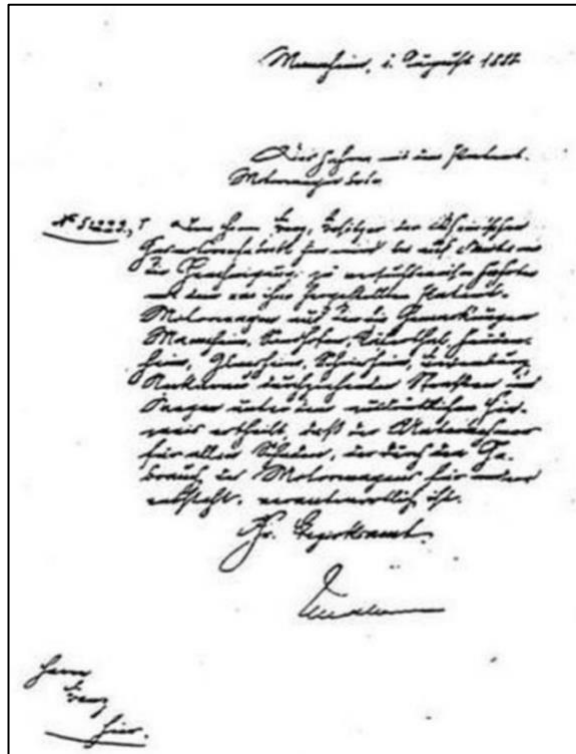 Mannheim, 1. August 1888
Das Fahren mit dem Patent-
Motorwagen
Dem Herrn Benz, Besitzer der Rheinischen
hier wird bis auf Weiteres
die Genehmigung zu versuchsweisen Fahrten
mit dem von ihm hergestellten Patent-
Motorwagen auf den die Gemarkungen
Mannheim, Sandhofen, Käferthal, Feuden-
heim, Ilvesheim, Schriesheim, Ladenburg,
Neckarau durchziehenden Straßen und
Wegen unter dem ausdrücklichen Hin-
weis ertheilt, daß der Unternehmer
für allen Schaden, der durch den Ge-
brauch des Motorwagens für andere
entsteht, verantwortlich ist.
Gr. Bezirksamt.
Herrn
Benz
hier.